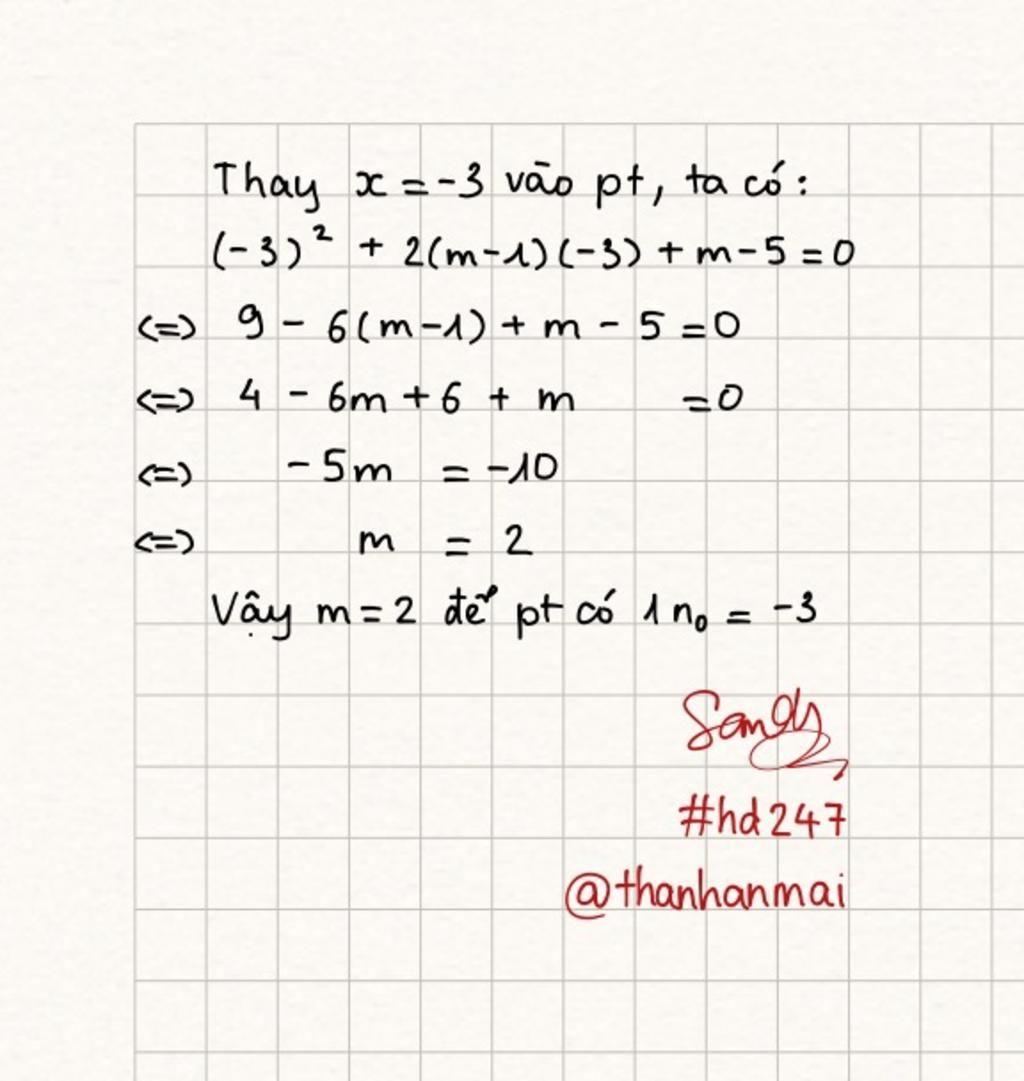 Thay x = -3 vào pt, ta có:
(-3)² + 2(m-1)(-3) + m - 5 = 0
<=> 9 - 6(m-1) + m - 5 = 0
<=> 4 - 6m + 6 + m = 0
<=> -5m = -10
<=> m = 2
Vậy m = 2 để pt có 1 n₀ = -3
Sandy
#hd247
@thanhanmai